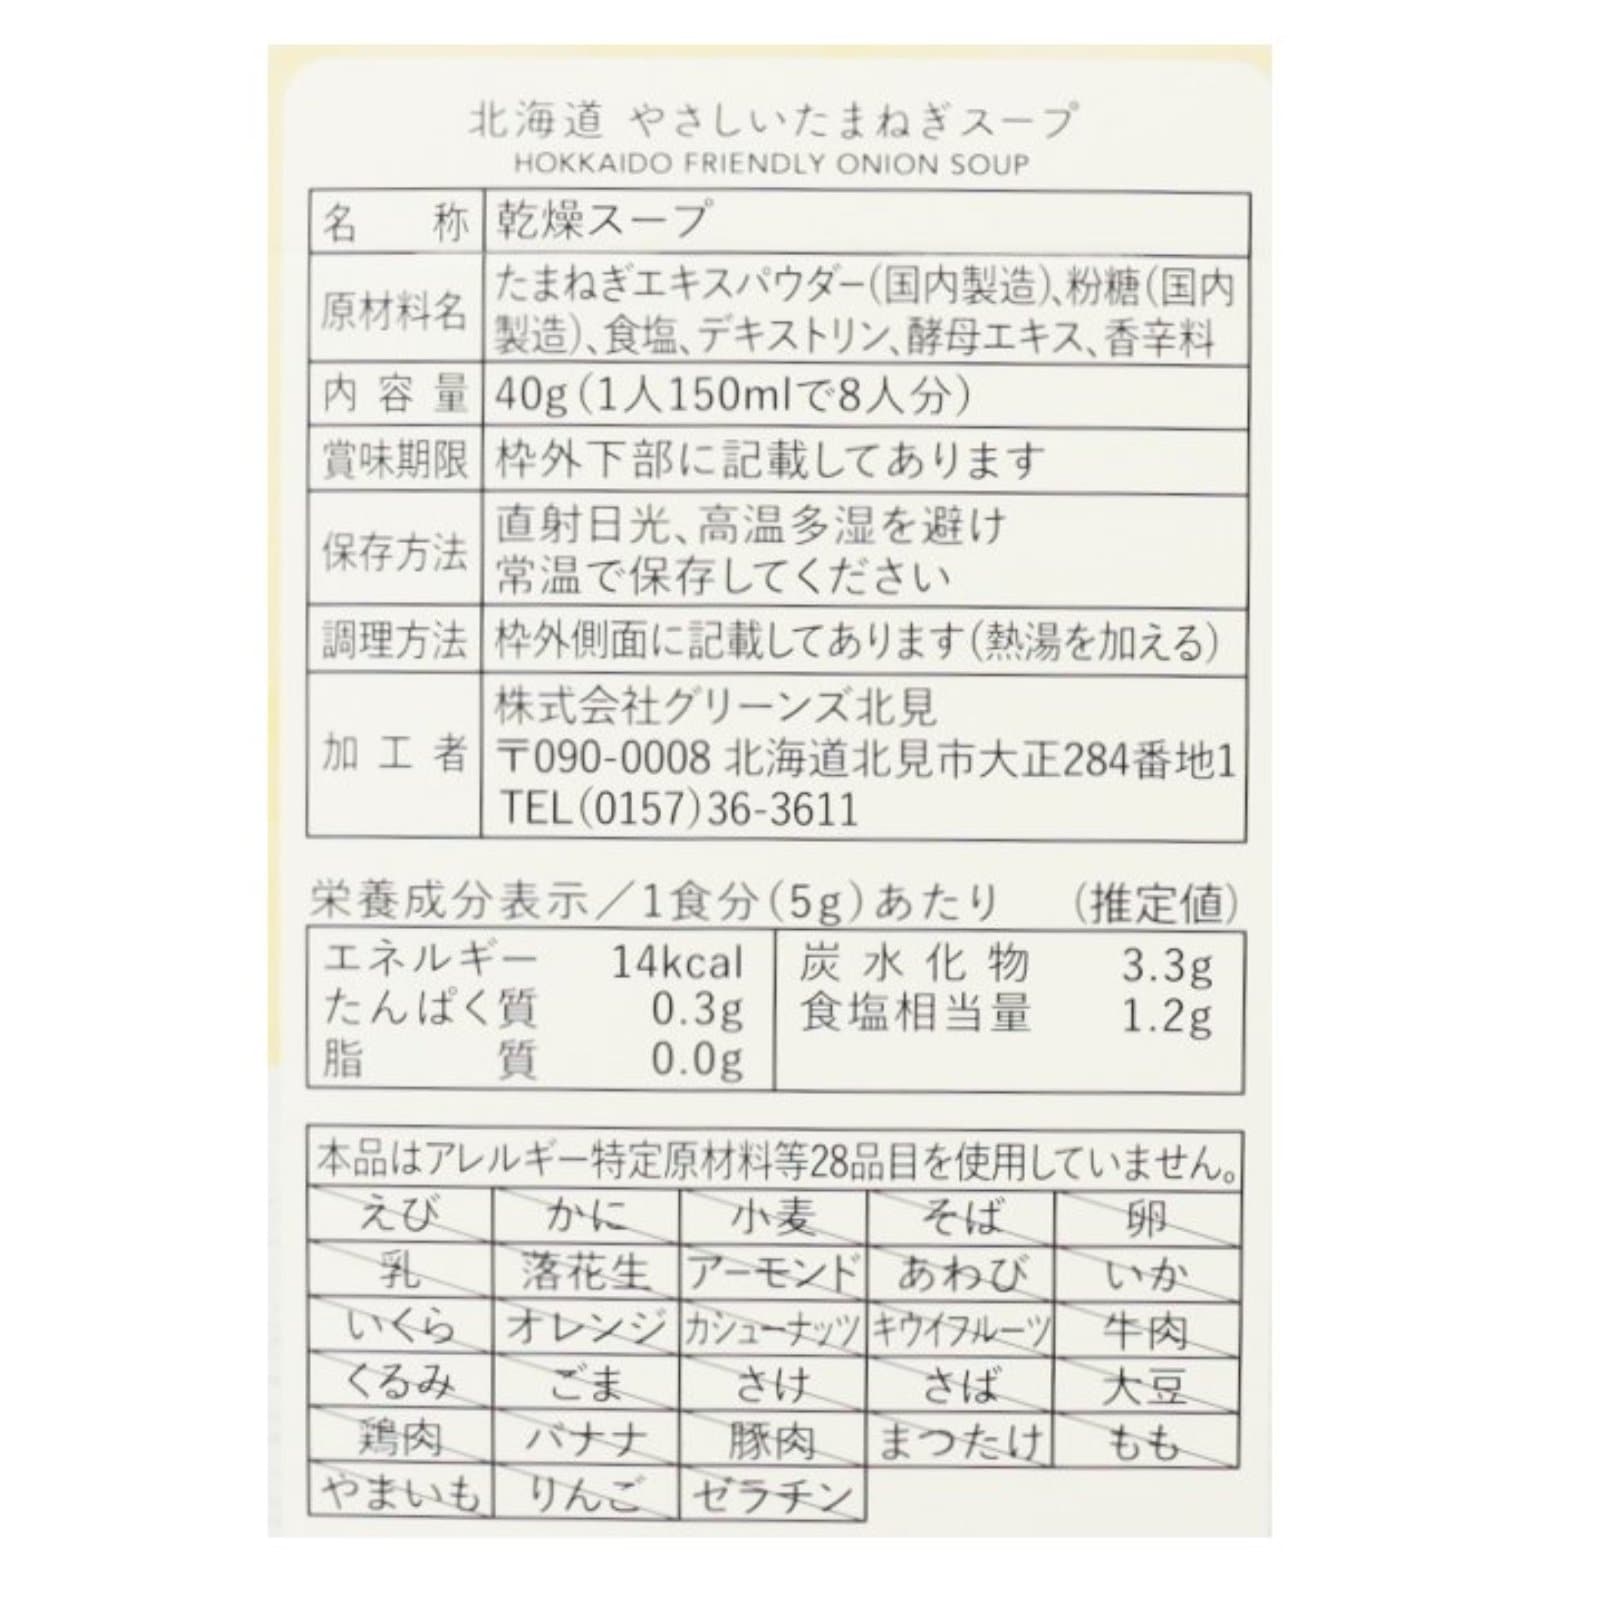 北海道 やさしいたまねぎスープ
HOKKAIDO FRIENDLY ONION SOUP
名称 乾燥スープ
原材料名 たまねぎエキスパウダー(国内製造)、粉糖(国内
製造)、食塩、デキストリン、酵母エキス、香辛料
内容量 40g(1人150mlで8人分)
賞味期限 枠外下部に記載してあります
保存方法 直射日光、高温多湿を避け
常温で保存してください
調理方法 枠外側面に記載してあります(熱湯を加える)
加工者 株式会社グリーンズ北見
〒090-0008 北海道北見市大正284番地1
TEL(0157)36-3611
栄養成分表示/1食分(5g)あたり (推定値)
エネルギー 14kcal 炭水化物 3.3g
たんぱく質 0.3g 食塩相当量 1.2g
脂質 0.0g
本品はアレルギー特定原材料等28品目を使用していません。
えび かに 小麦 そば 卵
乳 落花生 アーモンド あわび いか
いくら オレンジ カシューナッツ キウイフルーツ 牛肉
くるみ ごま さけ さば 大豆
鶏肉 バナナ 豚肉 まつたけ もも
やまいも りんご ゼラチン